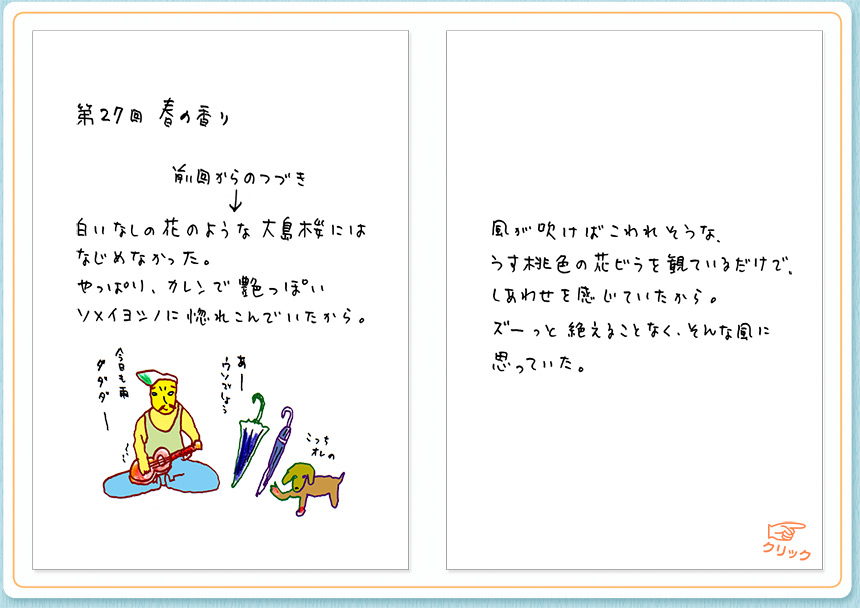 第27回 春の香り
前回からのつづき
↓
白いなしの花のような大島桜には
なじめなかった。
やっぱり、カレンで艶っぽい
ソメイヨシノに惚れこんでいたから。
今日も雨
ダダダー
あー
ウソでしょう
こっち
オレの
風が吹けばこわれそうな、
うす桃色の花びらを観ているだけで、
しあわせを感じていたから。
ズーっと絶えることなく、そんな風に
思っていた。
クリック